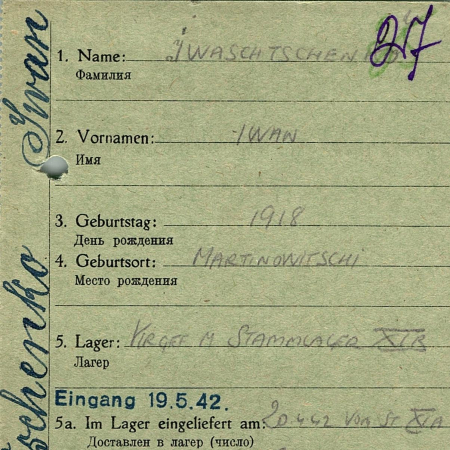 27
1. Name: IWASCHTSCHENKO
Фамилия
2. Vornamen: IWAN
Имя
3. Geburtstag: 1918
День рождения
4. Geburtsort: MARTINOWITSCHI
Место рождения
5. Lager: KRGEF M STAMMLAGER XIB
Лагерь
Eingang 19.5.42.
5a. Im Lager eingeliefert am: 20.4.42 VOM ST XIA
Доставлен в лагерь (число)
Iwan